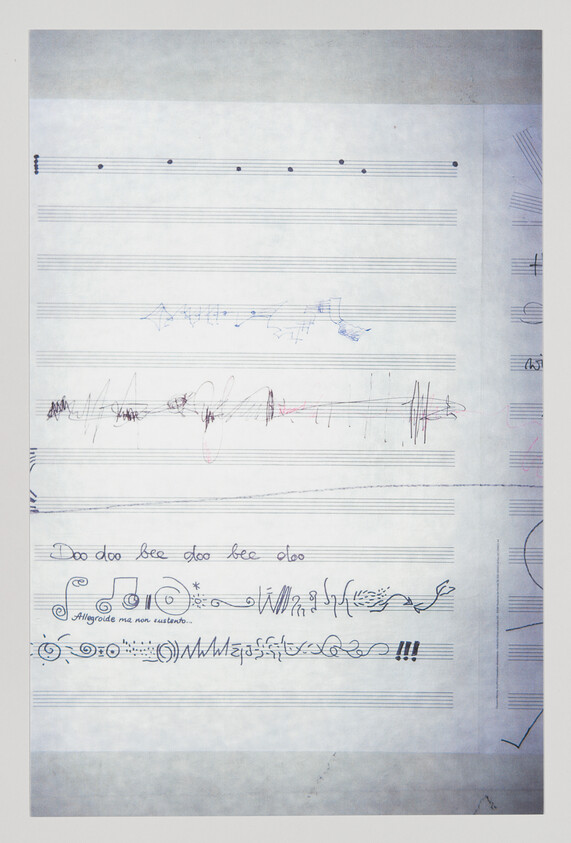 Doo doo bee doo bee doo
Allegroide ma non sustento...
!!!